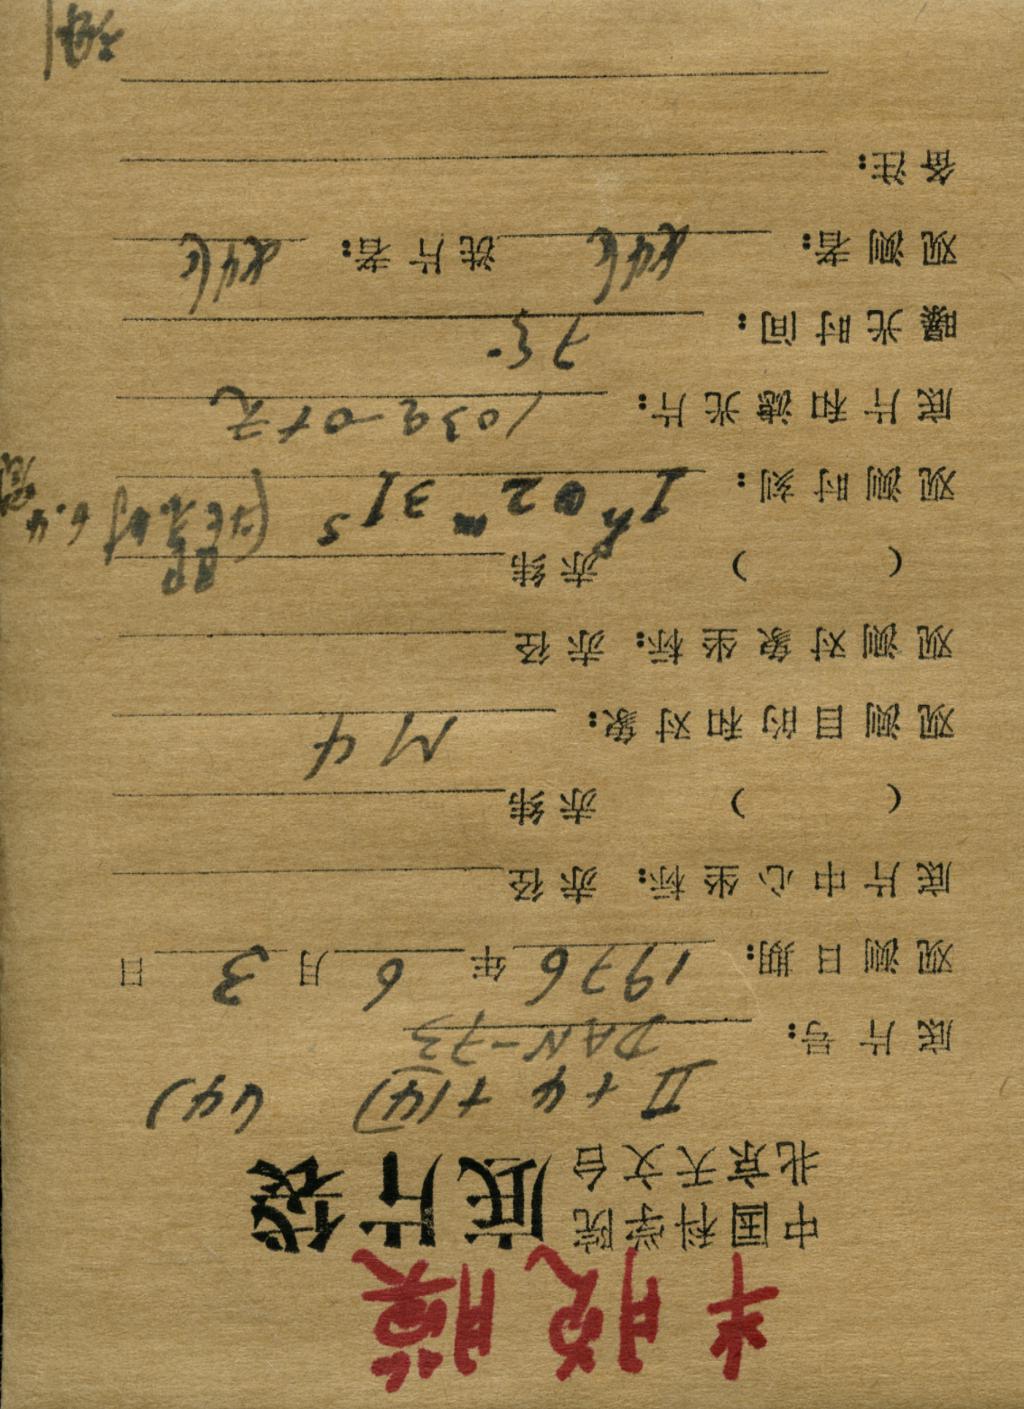 半胶膜
中国科学院
北京天文台
底片袋
II+4+14) 44)
底片号: DAN-73
观测日期: 1976年6月3日
底片中心坐标: 赤径
( ) 赤纬
观测目的和对象: M4
观测对象坐标: 赤径
( ) 赤纬
观测时刻: 1h 02m 31s
底片和滤光片: 103a-O+无
曝光时间: 75
观测者: 洗片者:
备注: